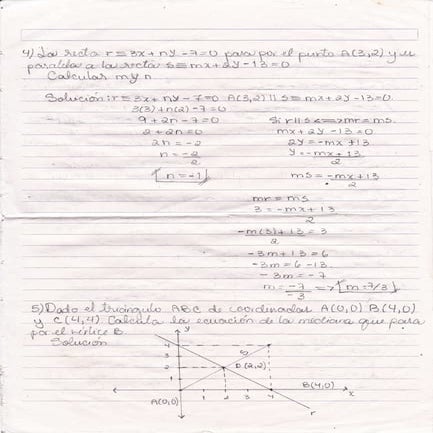 4) La recta r≡3x+ny-7=0 pasa por el punto A(3,2) y es
paralela a la recta s≡mx+2y-13=0
Calcular m y n
Solución: r≡3x+ny-7=0 A(3,2) || s≡mx+2y-13=0
3(3)+n(2)-7=0
9+2n-7=0 Si r||s<=>mr=ms
2+2n=0 mx+2y-13=0
2n=-2 2y=-mx+13
n=-2/2 y=-mx+13/2
[n=-1] ms=-mx+13/2
mr=ms
3=-mx+13/2
-m(3)+13/2=3
-3m+13=6
-3m=6-13
-3m=-7
m=-7/-3 => [m=7/3]
5) Dado el triángulo ABC de coordenadas A(0,0) B(4,0)
y C(4,4). Calcula la ecuación de la mediana que pasa
por el vértice B.
Solución
y
4
3
2 D(2,2)
1
B(4,0)
A(0,0) 1 2 3 4 x
r